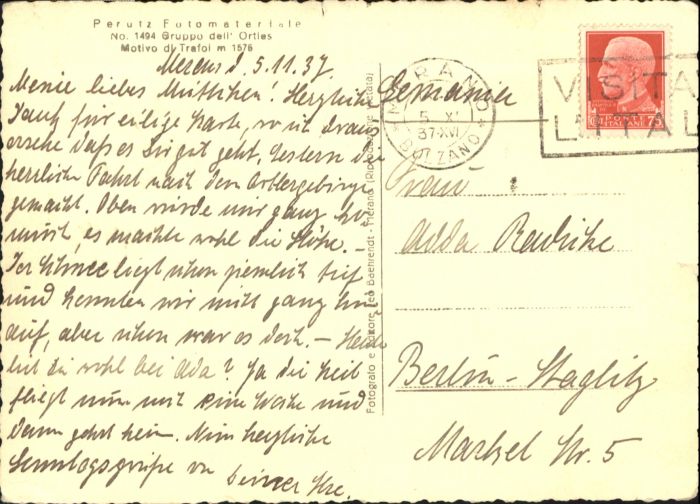 Perutz Fotomateriale
No. 1494 Gruppo dell' Ortles
Motivo di Trafoi m 1576
Meran d. 5.11.37
Meine liebes Muttchen! Herzliche
Dank für eilige Karte, wo ich draus
ersehe daß es Dir gut geht. Gestern die
herrliche Fahrt nach dem Ortlergebirge
gemacht. Oben wurde mir ganz
es machte wohl die Höhe. –
Der Schnee liegt schon ziemlich tief
und konnten wir nicht ganz hin
auf, aber schon war es doch. – Heute
bist du wohl bei Adda? Ja die Zeit
fliegt nun noch eine Woche und
dann gehts heim. Nun herzliche
Sonntagsgrüße von
Deiner
Fotografo e Editore Leo Baehrendt - Merano (Riproduzione vietata)
Germanien
MERANO
5 XI
37-XVI
BOLZANO
VISITA
L'ITAL
POSTE ITALIANE
CENT. 75
Frau
Adda Radicke
Berlin-Steglitz
Markel Str. 5